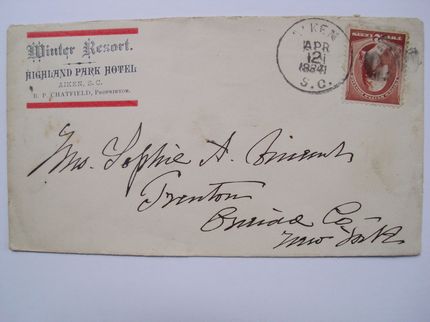 Winter Resort.
HIGHLAND PARK HOTEL
AIKEN, S.C.
B. P. CHATFIELD, PROPRIETOR.
AIKEN
APR
12
1884
S.C.
Mrs. Sophie A. Vincent
Trenton
Oneida Co
New York